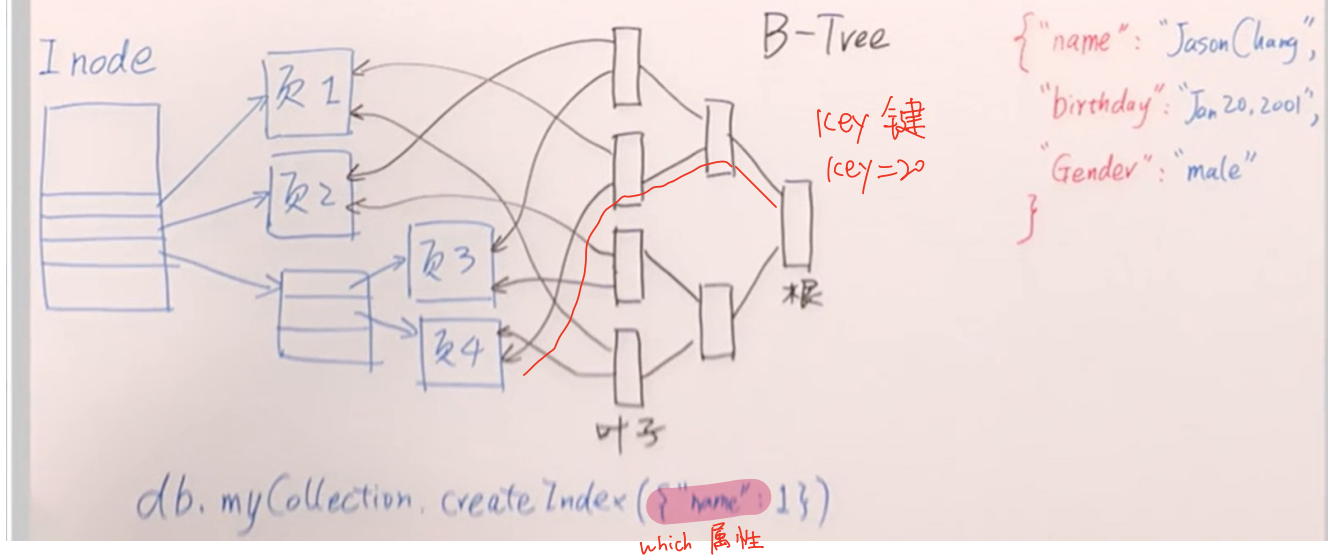 Inode
页1
页2
页3
页4
B-Tree
key 键
key=20
根
叶子
{"name": "Jason Chang",
"birthday": "Jan 20, 2001",
"Gender": "male"
}
db.myCollection.createIndex({"name": 1})
which 属性